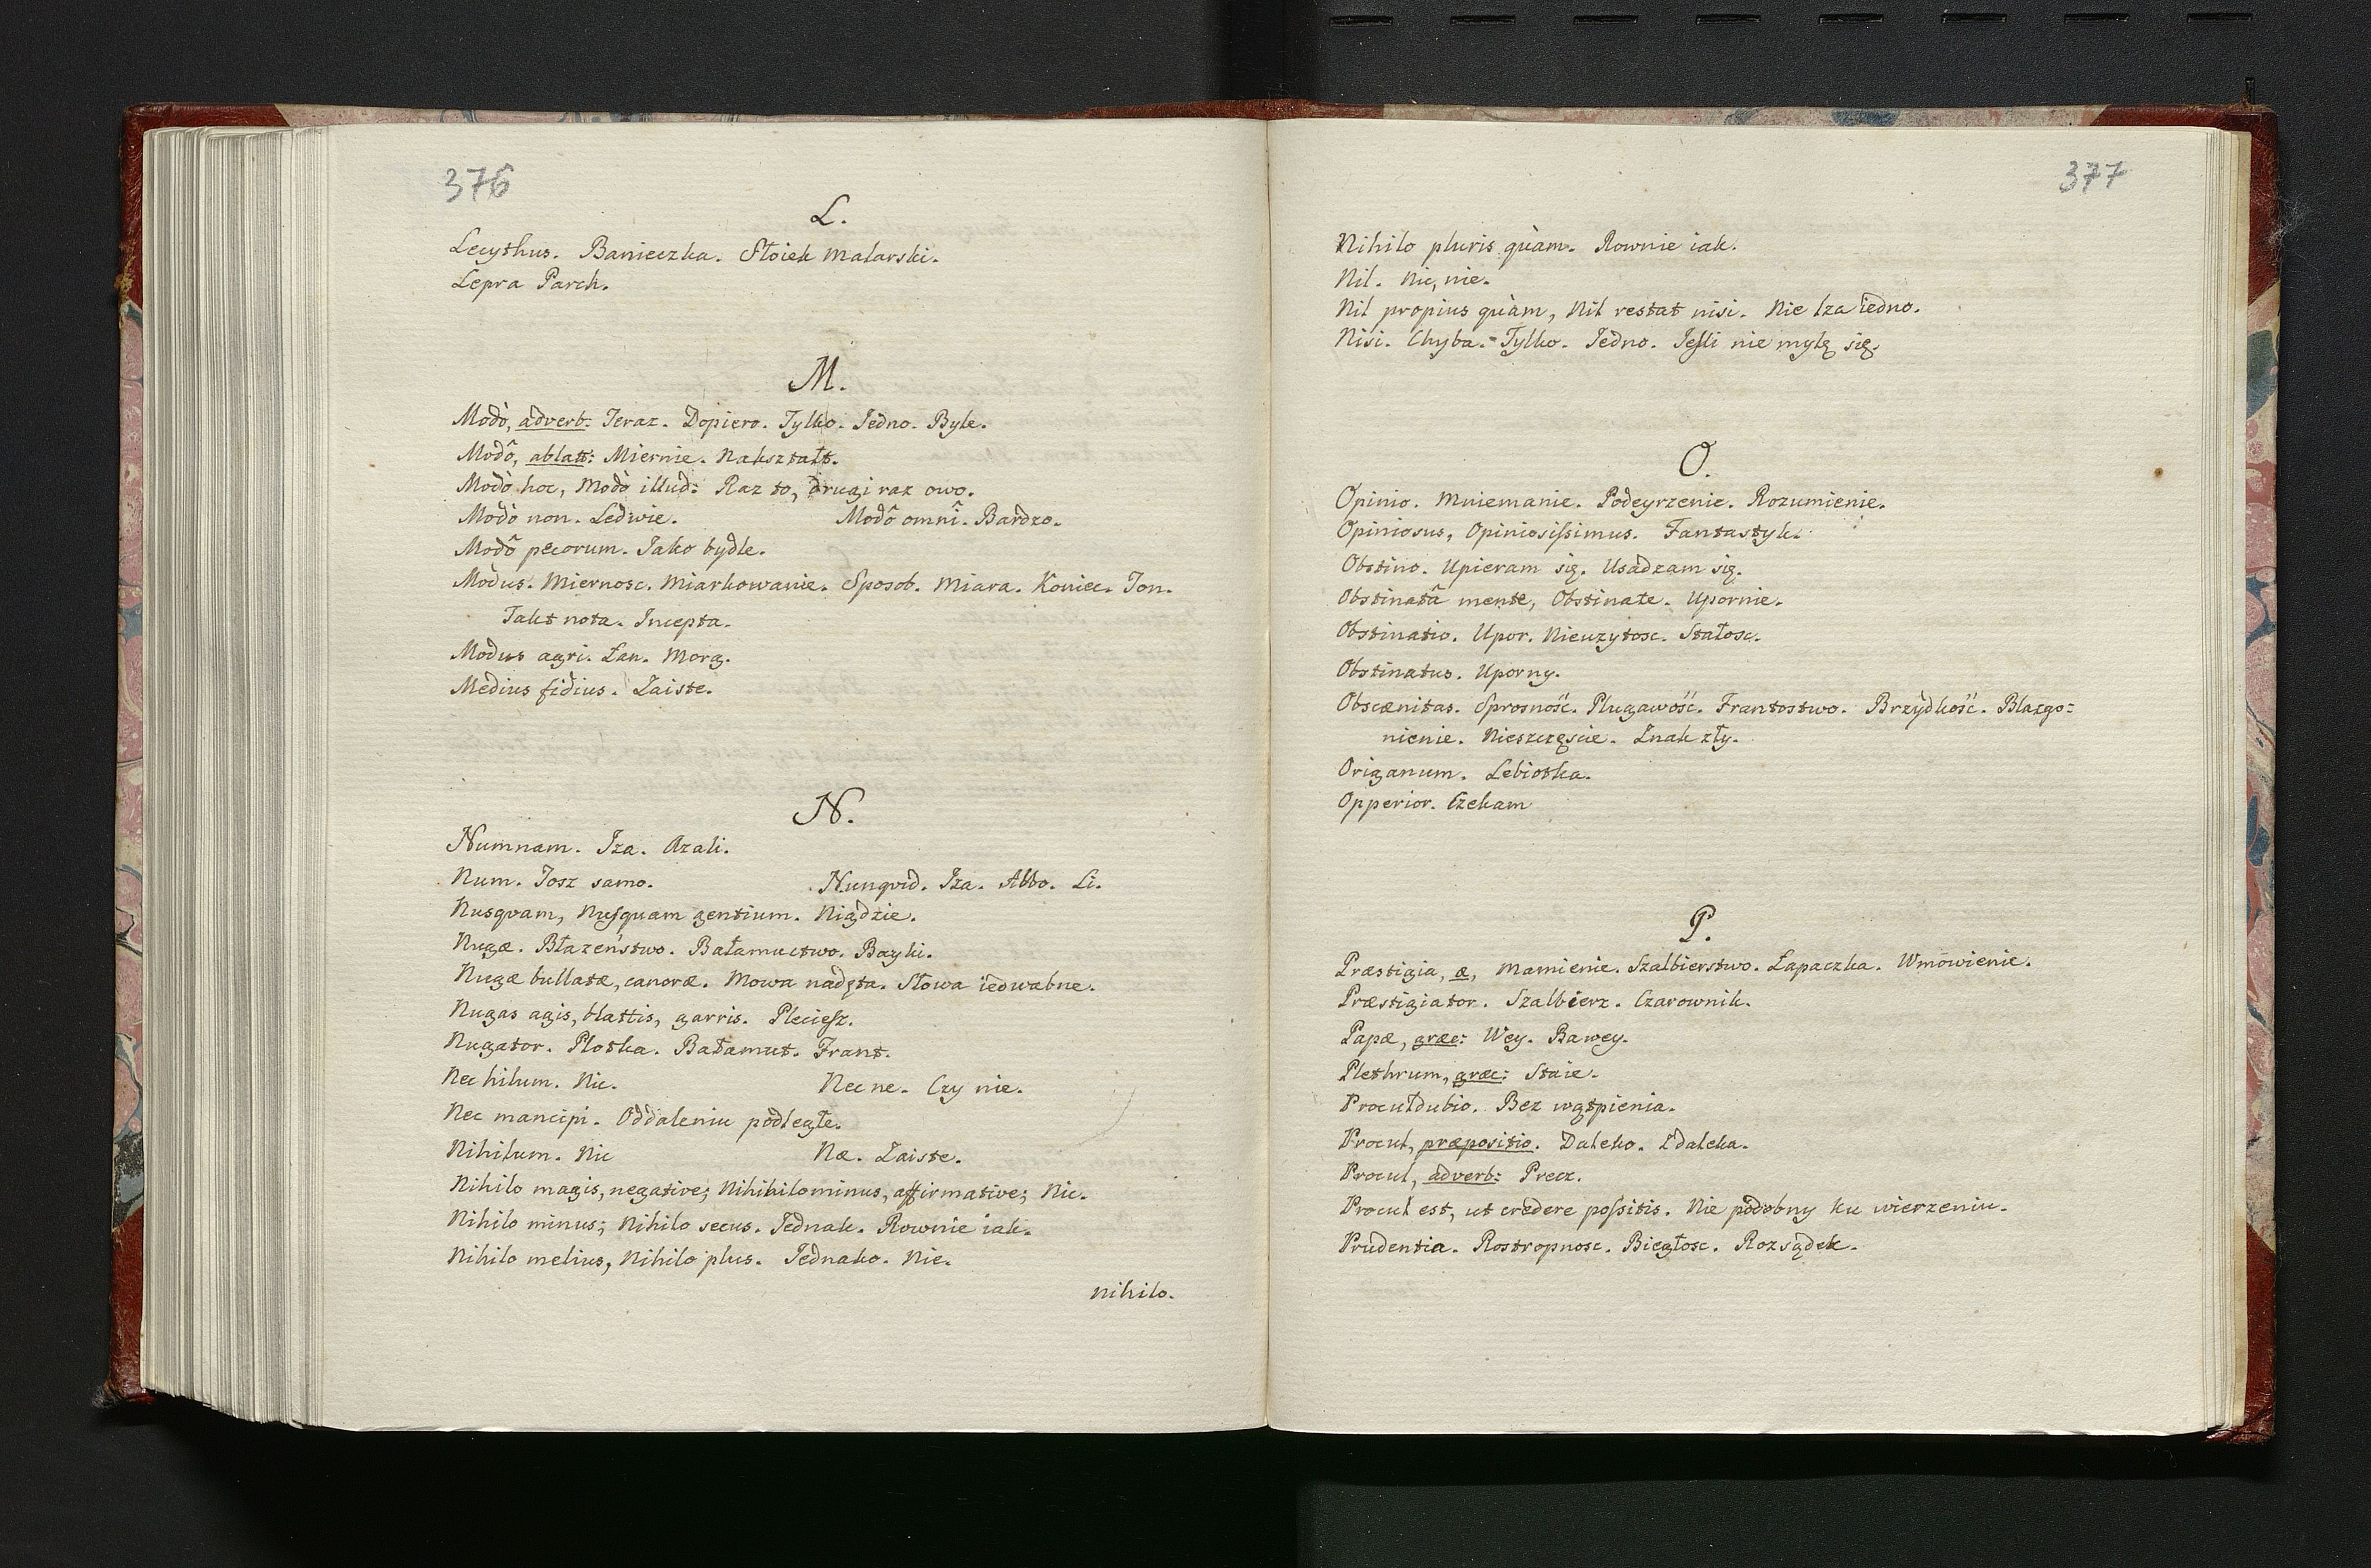 376
L.
Lecythus. Banieczka. Słoiek malarski.
Lepra Parch.
M.
Modò, adverb: Teraz. Dopiero. Tylko. Jedno. Byle.
Modô, ablatt: Miernie. Nakształt.
Modò hoc, Modò illud: Raz to, drugi raz owo.
Modò non. Ledwie. Modô omnî. Bardzo.
Modô pecorum. Jako bydle.
Modus. Miernosc. Miarkowanie. Sposob. Miara. Koniec. Ton.
Takt nota. Incepta.
Modus agri. Łan. Morg.
Medius fidius. Zaiste.
N.
Numnam. Iza. Azali.
Num. Tosz samo. Nunqvid. Iza. Abbo. Li.
Nusqvam, Nuſquam gentium. Nigdzie.
Nugæ. Błazeństwo. Bałamuctwo. Bayki.
Nugæ bullatæ, canoræ. Mowa nadęta. Słowa iedwabne.
Nugas agis, blattis, garris. Pleciesz.
Nugator. Plotka. Bałamut. Frant.
Nec hilum. Nic. Nec ne. Czy nie.
Nec mancipi. Oddaleniu podległe.
Nihilum. Nic Næ. Zaiste.
Nihilo magis, negative; Nihihilominus, affirmative; Nic.
Nihilo minus; Nihilo secus. Jednak. Rownie iak.
Nihilo melius, Nihilo plus. Jednako. Nie.
nihilo.
377
Nihilo pluris quàm. Rownie iak.
Nil. Nic, nie.
Nil propius quàm, Nil restat nisi. Nie lza iedno.
Nisi. Chyba. Tylko. Jedno. Jeſli nie mylę się.
O.
Opinio. Mniemanie. Podeyrzenie. Rozumienie.
Opiniosus, Opiniosiſsimus. Fantastyk.
Obstino. Upieram się. Usadzam się.
Obstinatâ mente, Obstinate. Upornie.
Obstinatio. Upor. Nieuzytosc. Stałosc.
Obstinatus. Uporny.
Obscænitas. Sprosność. Plugawość. Frantostwo. Brzydkość. Blazgo=
nienie. Nieszczęscie. Znak zły.
Origanum. Lebiotka.
Opperior. Czekam
P.
Præstigia, æ, Mamienie. Szalbierstwo. Łapaczka. Wmówienie.
Præstigiator. Szalbierz. Czarownik.
Papæ, græc: Wey. Bawey.
Plethrum, græc: Staie.
Proculdubio. Bez wątpienia.
Procul, præpositio. Daleko. Zdaleka.
Procul, adverb: Precz.
Procul est, ut credere poſsitis. Nie podobny ku wierzeniu.
Prudentia. Rostropnosc. Biegłosc. Rozsądek.